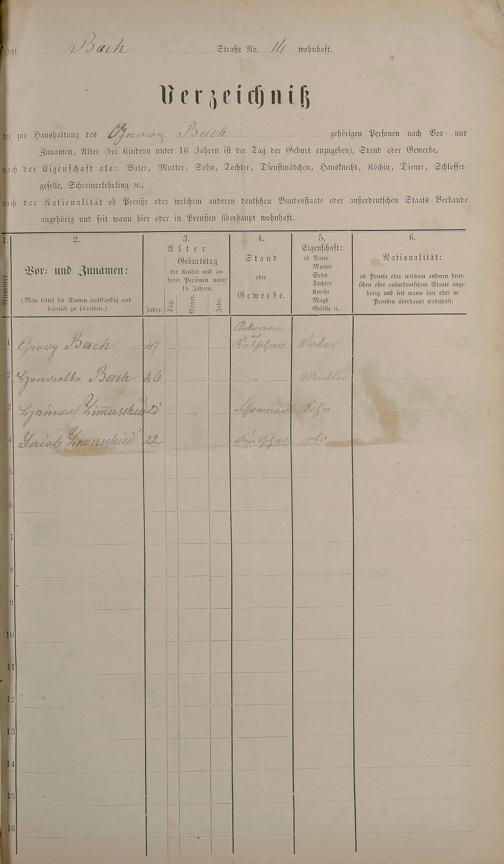 Bach Straße No. 14 wohnhaft.
Verzeichniß
der zur Haushaltung des Georg Bach gehörigen Personen nach Vor- und
Zunamen, Alter (bei Kindern unter 16 Jahren ist der Tag der Geburt anzugeben), Stand oder Gewerbe,
nach der Eigenschaft als: Vater, Mutter, Sohn, Tochter, Dienstmädchen, Hausknecht, Köchin, Diener, Schlosser-
geselle, Schreinerlehrling ꝛc.,
nach der Nationalität ob Preuße oder welchem anderen deutschen Bundesstaate oder außerdeutschen Staats-Verbande
angehörig und seit wann hier oder in Preußen überhaupt wohnhaft.
1. 2. 3. 4. 5. 6.
Nummer.
Vor- und Zunamen:
(Man bittet die Namen vollständig und
leserlich zu schreiben.)
Alter
Geburtstag
der Kinder und an-
derer Personen unter
16 Jahren.
Jahre. Tag. Monat. Jahr.
Stand
oder
Gewerbe.
Eigenschaft:
ob Vater
Mutter
Sohn
Tochter
Köchin
Knecht
Magd
Geselle u.
Nationalität:
ob Preuße oder welchem anderen deut-
schen oder außerdeutschen Staate ange-
hörig und seit wann hier oder in
Preußen überhaupt wohnhaft.
1 Georg Bach 47 Vater
2 Bach 46 Mutter
3 Zimerschied 25 Sohn
4 Zimerschied 22 dto
5
6
7
8
9
10
11
12
13
14
15
16